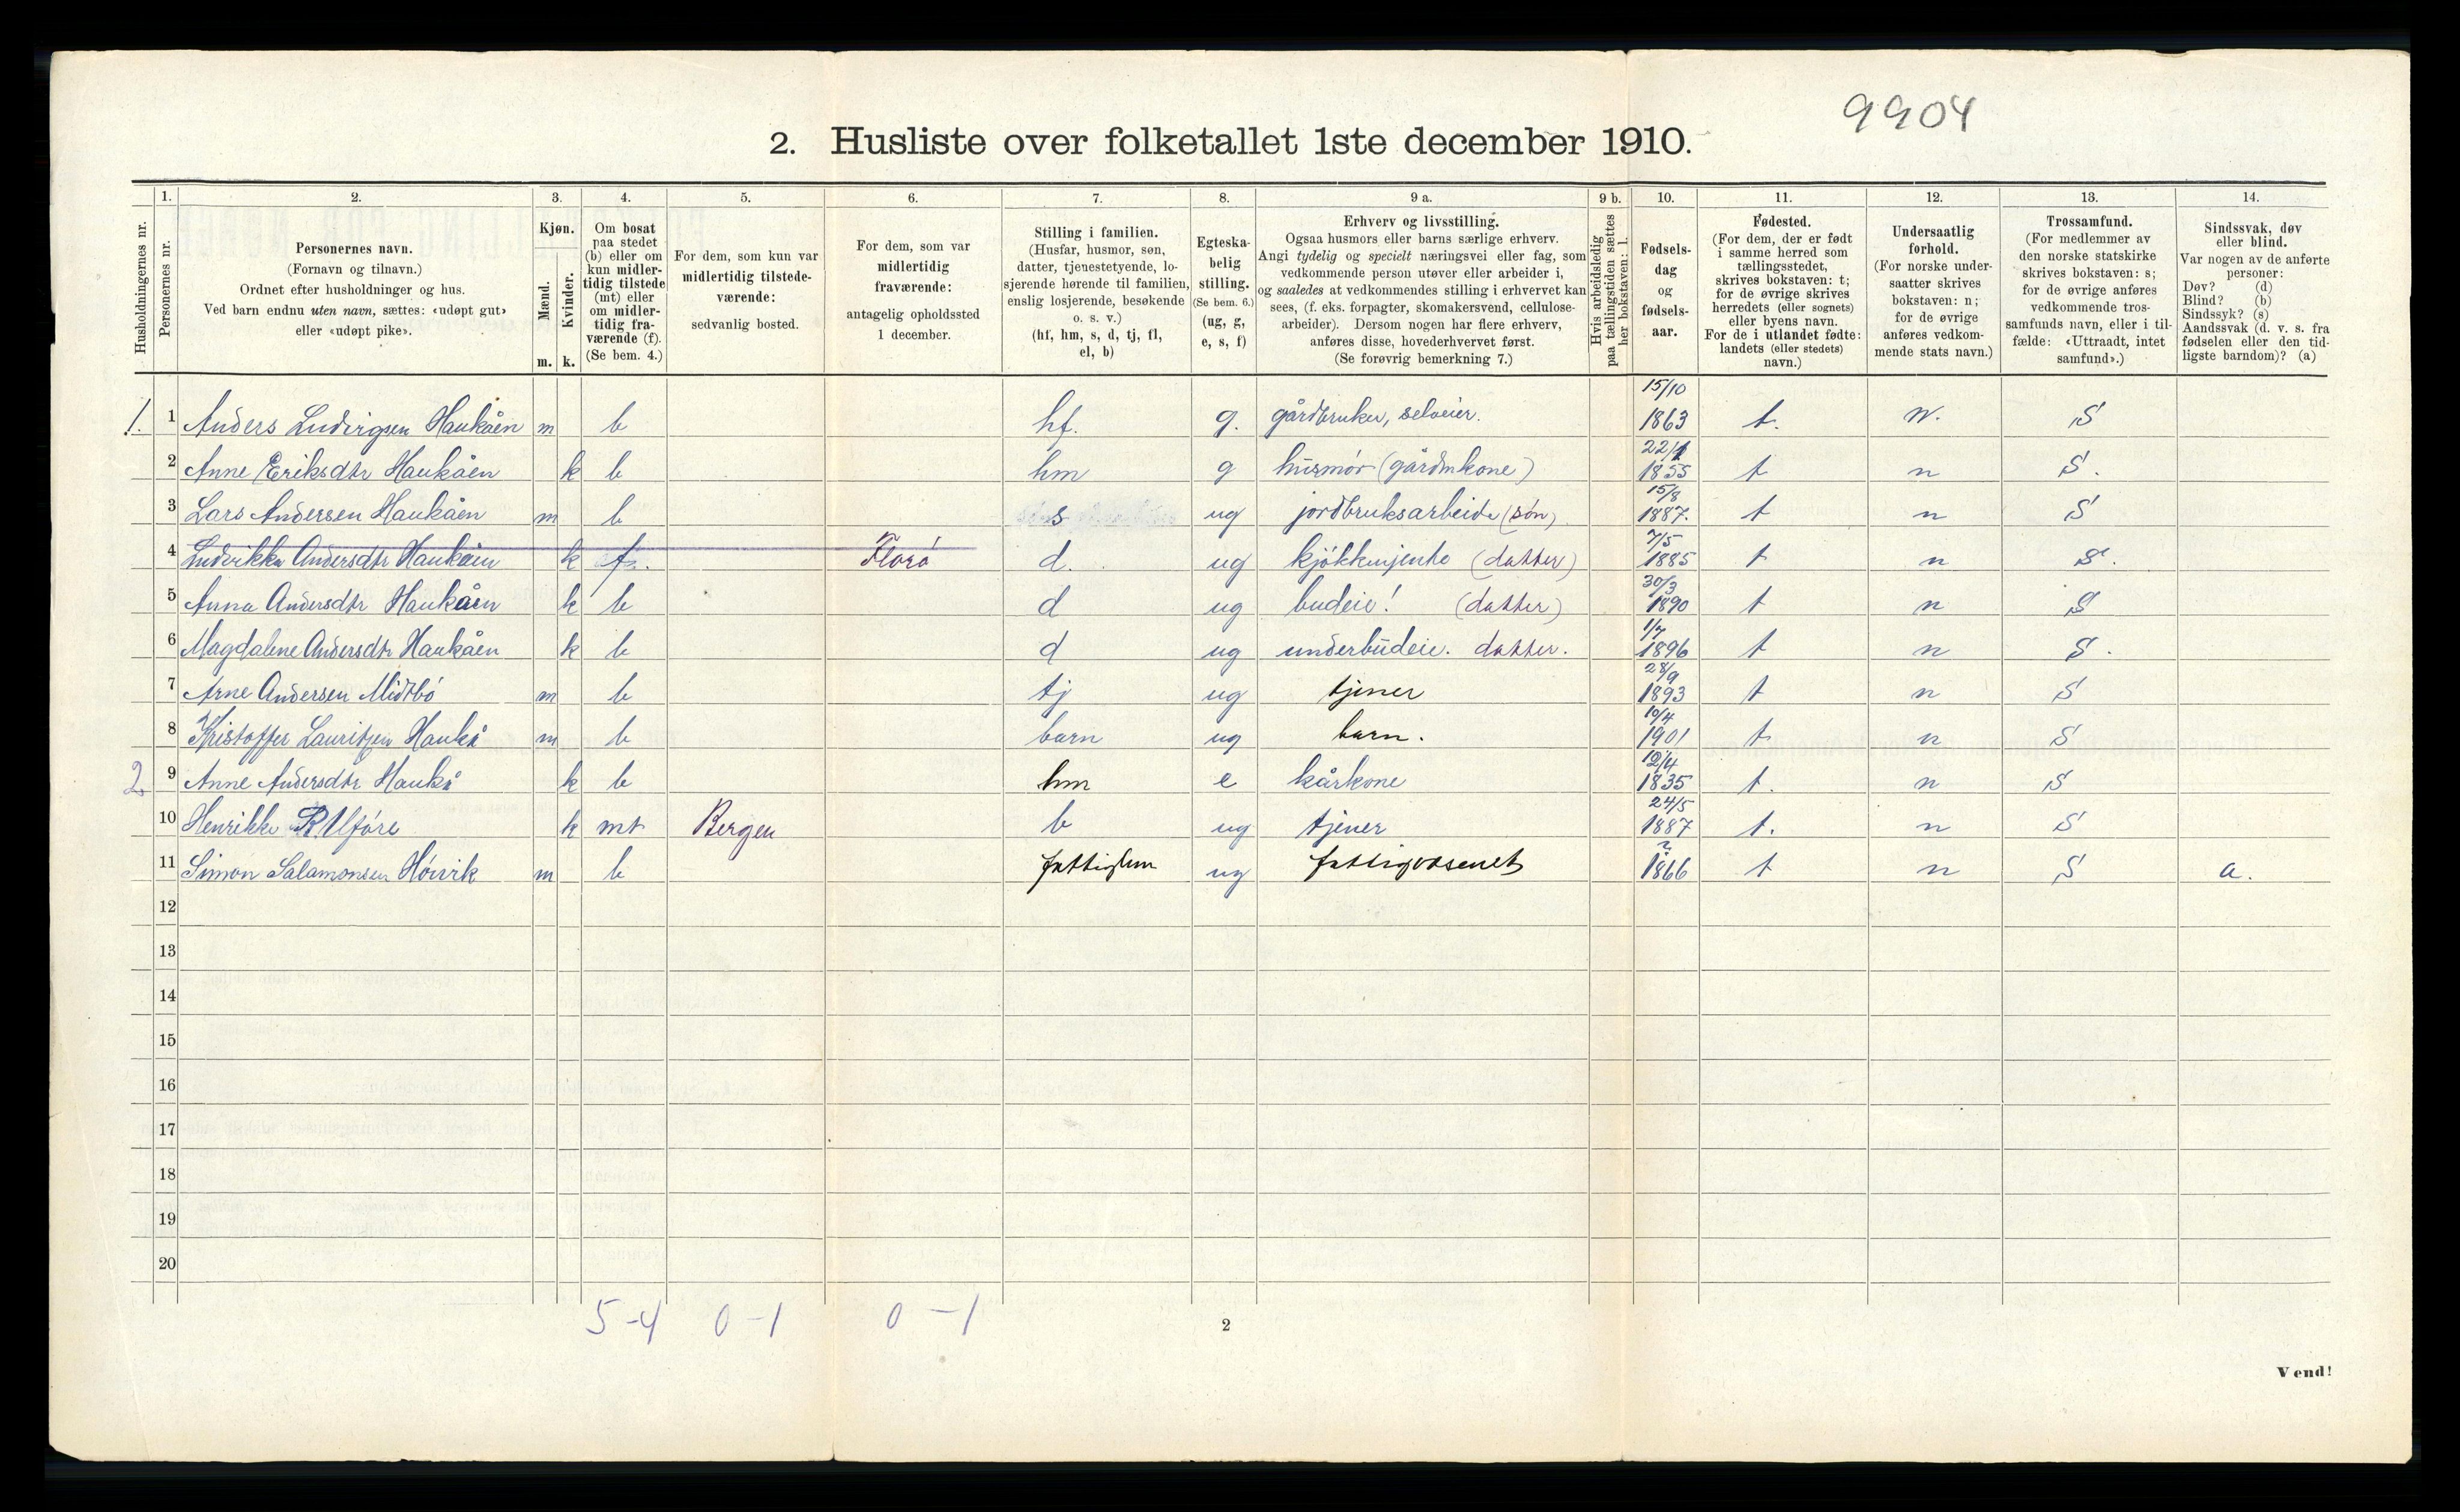 9904
2. Husliste over folketallet 1ste december 1910.
1. 2. 3. 4. 5. 6. 7. 8. 9 a. 9 b. 10. 11. 12. 13. 14.
Husholdningernes nr.
Personernes nr.
Personernes navn.
(Fornavn og tilnavn.)
Ordnet efter husholdninger og hus.
Ved barn endnu uten navn, sættes: «udøpt gut»
eller «udøpt pike».
Kjøn.
Mænd.
Kvinder.
m. k.
Om bosat
paa stedet
(b) eller om
kun midler-
tidig tilstede
(mt) eller
om midler-
tidig fra-
værende (f).
(Se bem. 4.)
For dem, som kun var
midlertidig tilstede-
værende:
sedvanlig bosted.
For dem, som var
midlertidig
fraværende:
antagelig opholdssted
1 december.
Stilling i familien.
(Husfar, husmor, søn,
datter, tjenestetyende, lo-
sjerende hørende til familien,
enslig losjerende, besøkende
o. s. v.)
(hf, hm, s, d, tj, fl,
el, b)
Egteska-
belig
stilling.
(Se bem. 6.)
(ug, g,
e, s, f)
Erhverv og livsstilling.
Ogsaa husmors eller barns særlige erhverv.
Angi tydelig og specielt næringsvei eller fag, som
vedkommende person utøver eller arbeider i,
og saaledes at vedkommendes stilling i erhvervet kan
sees, (f. eks. forpagter, skomakersvend, cellulose-
arbeider). Dersom nogen har flere erhverv,
anføres disse, hovederhvervet først.
(Se forøvrig bemerkning 7.)
Hvis arbeidsledig
paa tællingstiden sættes
her bokstaven: l.
Fødsels-
dag
og
fødsels-
aar.
Fødested.
(For dem, der er født
i samme herred som
tællingsstedet,
skrives bokstaven: t;
for de øvrige skrives
herredets (eller sognets)
eller byens navn.
For de i utlandet fødte:
landets (eller stedets)
navn.)
Undersaatlig
forhold.
(For norske under-
saatter skrives
bokstaven: n;
for de øvrige
anføres vedkom-
mende stats navn.)
Trossamfund.
(For medlemmer av
den norske statskirke
skrives bokstaven: s;
for de øvrige anføres
vedkommende tros-
samfunds navn, eller i til-
fælde: «Uttraadt, intet
samfund».)
Sindssvak, døv
eller blind.
Var nogen av de anførte
personer:
Døv? (d)
Blind? (b)
Sindssyk? (s)
Aandssvak (d. v. s. fra
fødselen eller den tid-
ligste barndom)? (a)
1. 1 Anders Ludvigsen Haukåen m b hf. g. gårdbruker, selveier. 15/10 1863 t. n. S
2 Anne Eriksdtr Haukåen k b hm g husmór (gårdmkone) 22/1 1855 t n S.
3 Lars Andersen Haukåen m b s ug jordbruksarbeide (són) 15/8 1887. t n S
4 Ludvikka Andersdtr Haukåen k f. Floró d. ug kjókkenjente (datter) 7/5 1885 t n S.
5 Anna Andersdtr Haukåen k b d ug budeie! (datter) 30/3 1890 t n S
6 Magdalene Andersdtr Haukåen k b d ug underbudeie. datter. 1/7 1896 t n S.
7 Arne Andersen Midtbó m b tj ug tjener 28/9 1893 t n S
8 Kristoffer Lauritzen Haukå m b barn ug barn. 10/4 1901 t n S
2 9 Anne Andersdtr Haukå k b hm e kårkone 12/4 1835 t. n S
10 Henrikke Ulfóre k mt Bergen b ug tjener 24/5 1887 t. n S
11 Simon Salamonsen Hóvik m b fattiglem ug ? 1866 t n S a.
12
13
14
15
16
17
18
19
20
5-4 0-1 0-1
2
Vend!